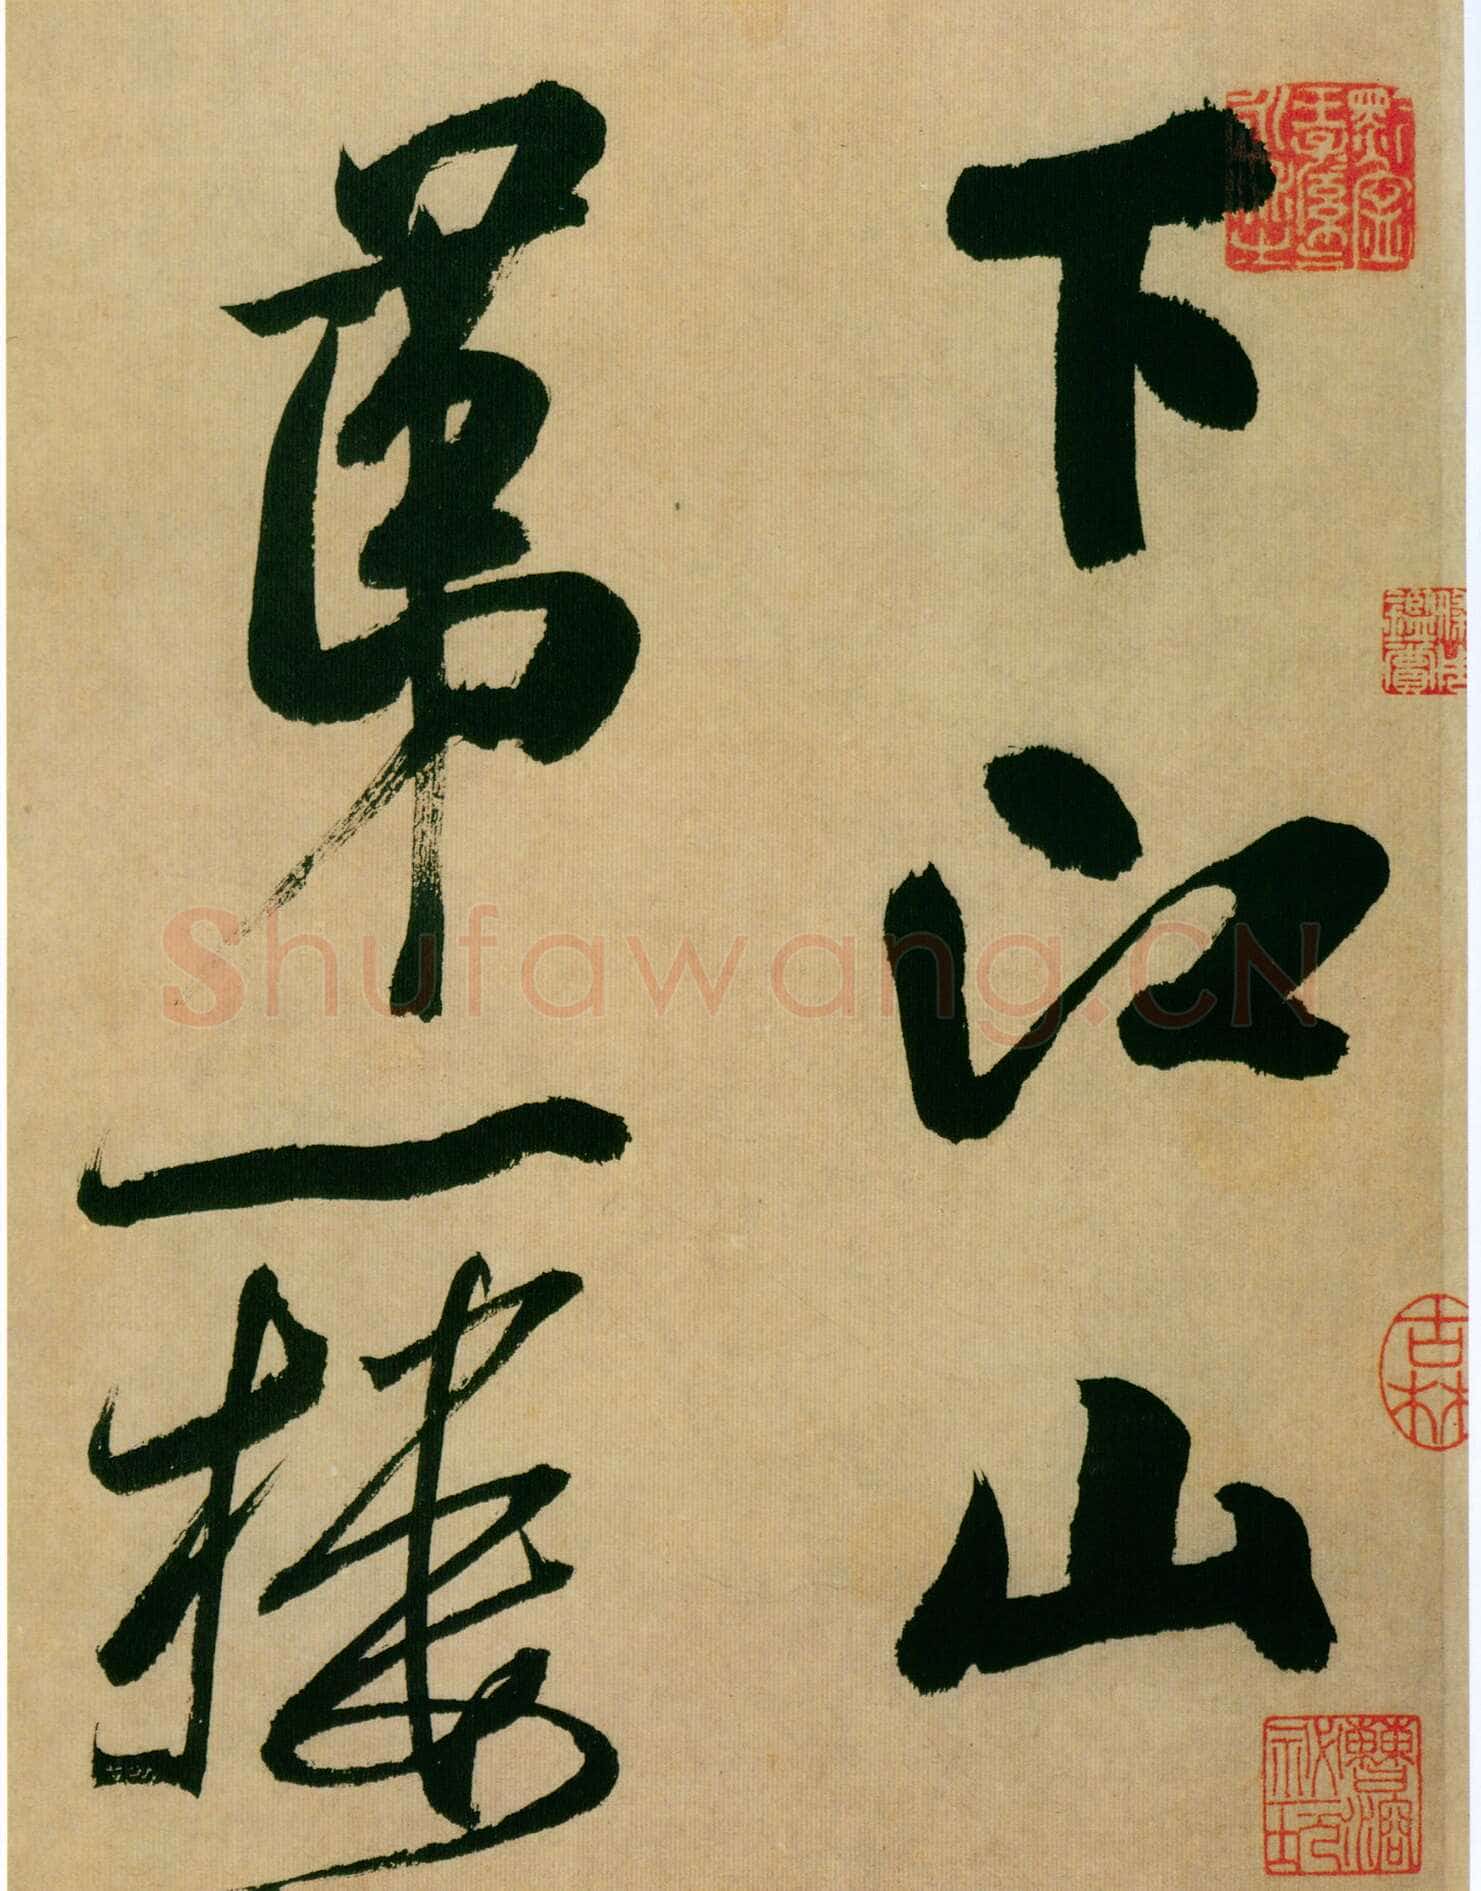 下江山
第一樓
吉林
Shufawang.CN